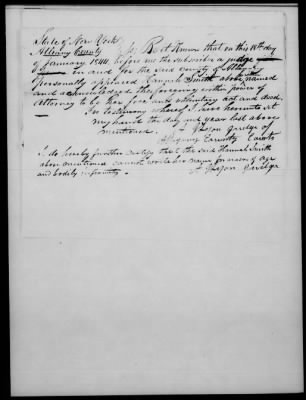 State of New York
Alleny County } Be it Known that on this 18th day
of January 1844 before me the subscriber a judge
in and for the said county of Alleny
personally appeared Hannah Smith above named
and acknowledged the foregoing written power of
Attorney to be her free and voluntary act and deed.
In testimony whereof I have hereunto set
my hand the day and year last above
mentioned.
judge of
Alleny County Courts
I do hereby further certify that the said Hannah Smith
above mentioned cannot write her name for reason of age
and bodily infirmity